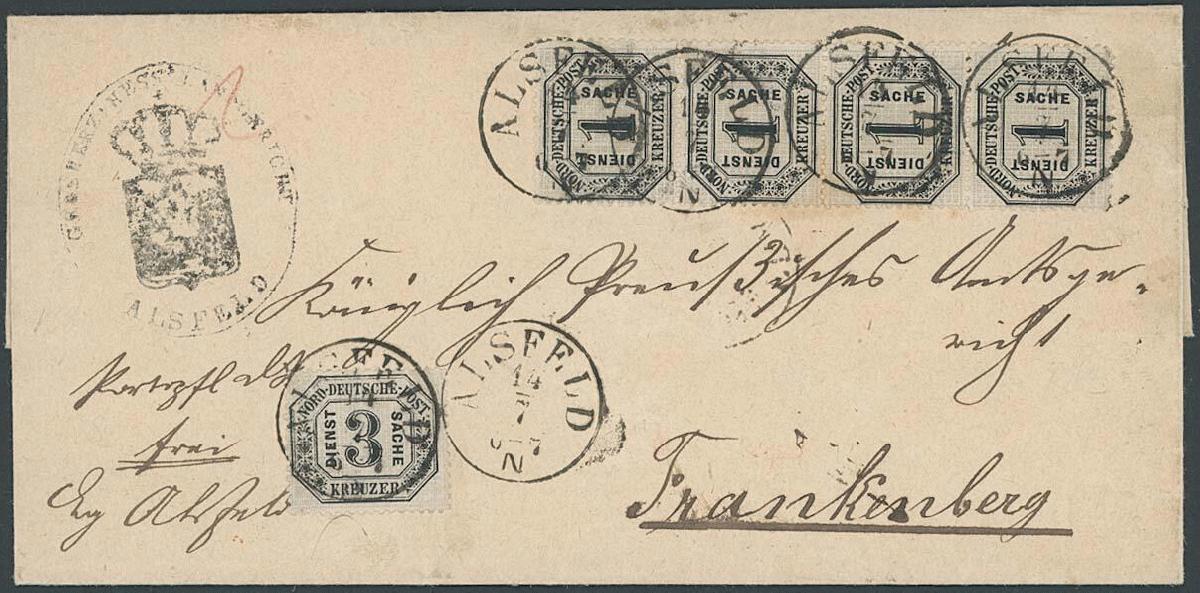 GROSSHERZ. HESS. LANDGERICHT
ALSFELD
NORD-DEUTSCHE-POST
DIENST SACHE
1
KREUZER
NORD-DEUTSCHE-POST
DIENST SACHE
1
KREUZER
NORD-DEUTSCHE-POST
DIENST SACHE
1
KREUZER
NORD-DEUTSCHE-POST
DIENST SACHE
1
KREUZER
ALSFELD
ALSFELD
ALSFELD
ALSFELD
Königlich Preußisches Amtsge-
richt
frei
Lg Alsfeld
NORD-DEUTSCHE-POST
DIENST SACHE
3
KREUZER
ALSFELD
ALSFELD
14
7
6-7
N
Frankenberg